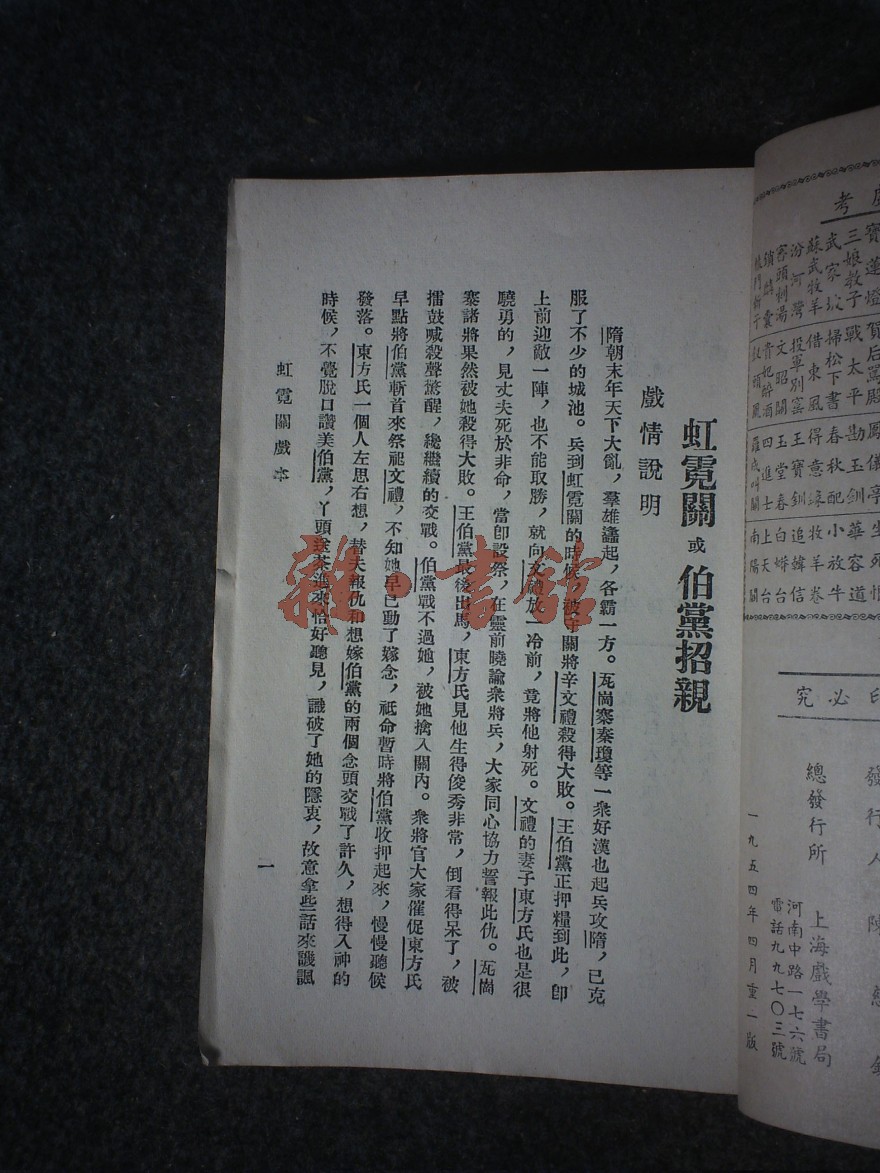 虹霓關 或 伯黨招親
戲情說明
隋朝末年天下大亂，羣雄蠭起，各霸一方。瓦崗寨秦瓊等一衆好漢也起兵攻隋，已克
服了不少的城池。兵到虹霓關的時候，被守關將辛文禮殺得大敗。王伯黨正押糧到此，卽
上前迎敵一陣，也不能取勝，就向文禮放一冷箭，竟將他射死。文禮的妻子東方氏也是很
驍勇的，見丈夫死於非命，當卽設祭，在靈前曉諭衆將兵，大家同心協力誓報此仇。瓦崗
寨諸將果然被她殺得大敗。王伯黨最後出馬，東方氏見他生得俊秀非常，倒看得呆了，被
擂鼓喊殺聲驚醒，纔繼續的交戰。伯黨戰不過她，被她擒入關內。衆將官大家催促東方氏
早點將伯黨斬首來祭祖文禮，不知她早已動了嫁念，祇命暫時將伯黨收押起來，慢慢聽候
發落。東方氏一個人左思右想，替夫報仇和想嫁伯黨的兩個念頭交戰了許久，想得入神的
時候，不覺脫口讚美伯黨，丫頭送茶進來恰好聽見，識破了她的隱衷，故意拿些話來譏諷
虹霓關戲本
一
雜·書館
考
寶蓮燈 賀后罵殿 鳳儀亭
三娘教子 戰太平 勘玉釧 華容道
武家坡 掃松下書 春秋配 小放牛
蘇武牧羊 借東風 得意緣 牧羊卷
汾河灣 投軍別窰 王寶釧 追韓信
文昭關 玉堂春 白蟒台
貴妃醉酒 四進士 上天台
羅成叫關 南陽關
印必究
發行人 陳
總發行所 上海戲學書局
河南中路一七六號
電話九九七〇三號
一九五四年四月重一版